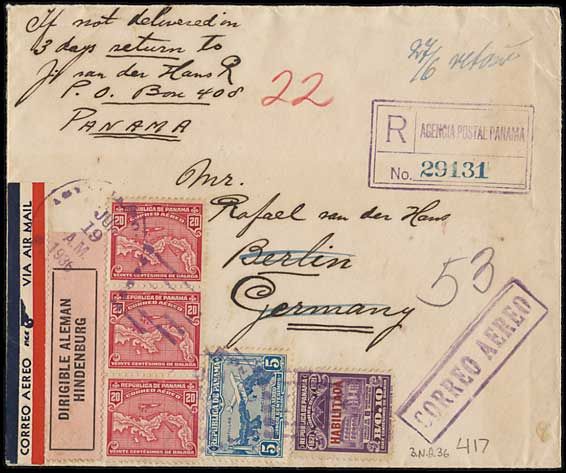 If not delivered in
3 days return to
Jr van der Hans R
P. O. Box 408
PANAMA
27/6 retour
22
R AGENCIA POSTAL PANAMA
No. 29131
Mr.
Rafael van der Hans
Berlin
Germany
53
CORREO AEREO
VIA AIR MAIL
CORREO AEREO
DIRIGIBLE ALEMAN
HINDENBURG
19
A.M.
REPUBLICA DE PANAMA
20 CORREO AEREO 20
VEINTE CENTESIMOS DE BALBOA
REPUBLICA DE PANAMA
20 CORREO AEREO 20
VEINTE CENTESIMOS DE BALBOA
REPUBLICA DE PANAMA
20 CORREO AEREO 20
VEINTE CENTESIMOS DE BALBOA
REPUBLICA DE PANAMA
5 5
REPUBLICA DE PANAMA
HABILITADA
B.N.A.36
417